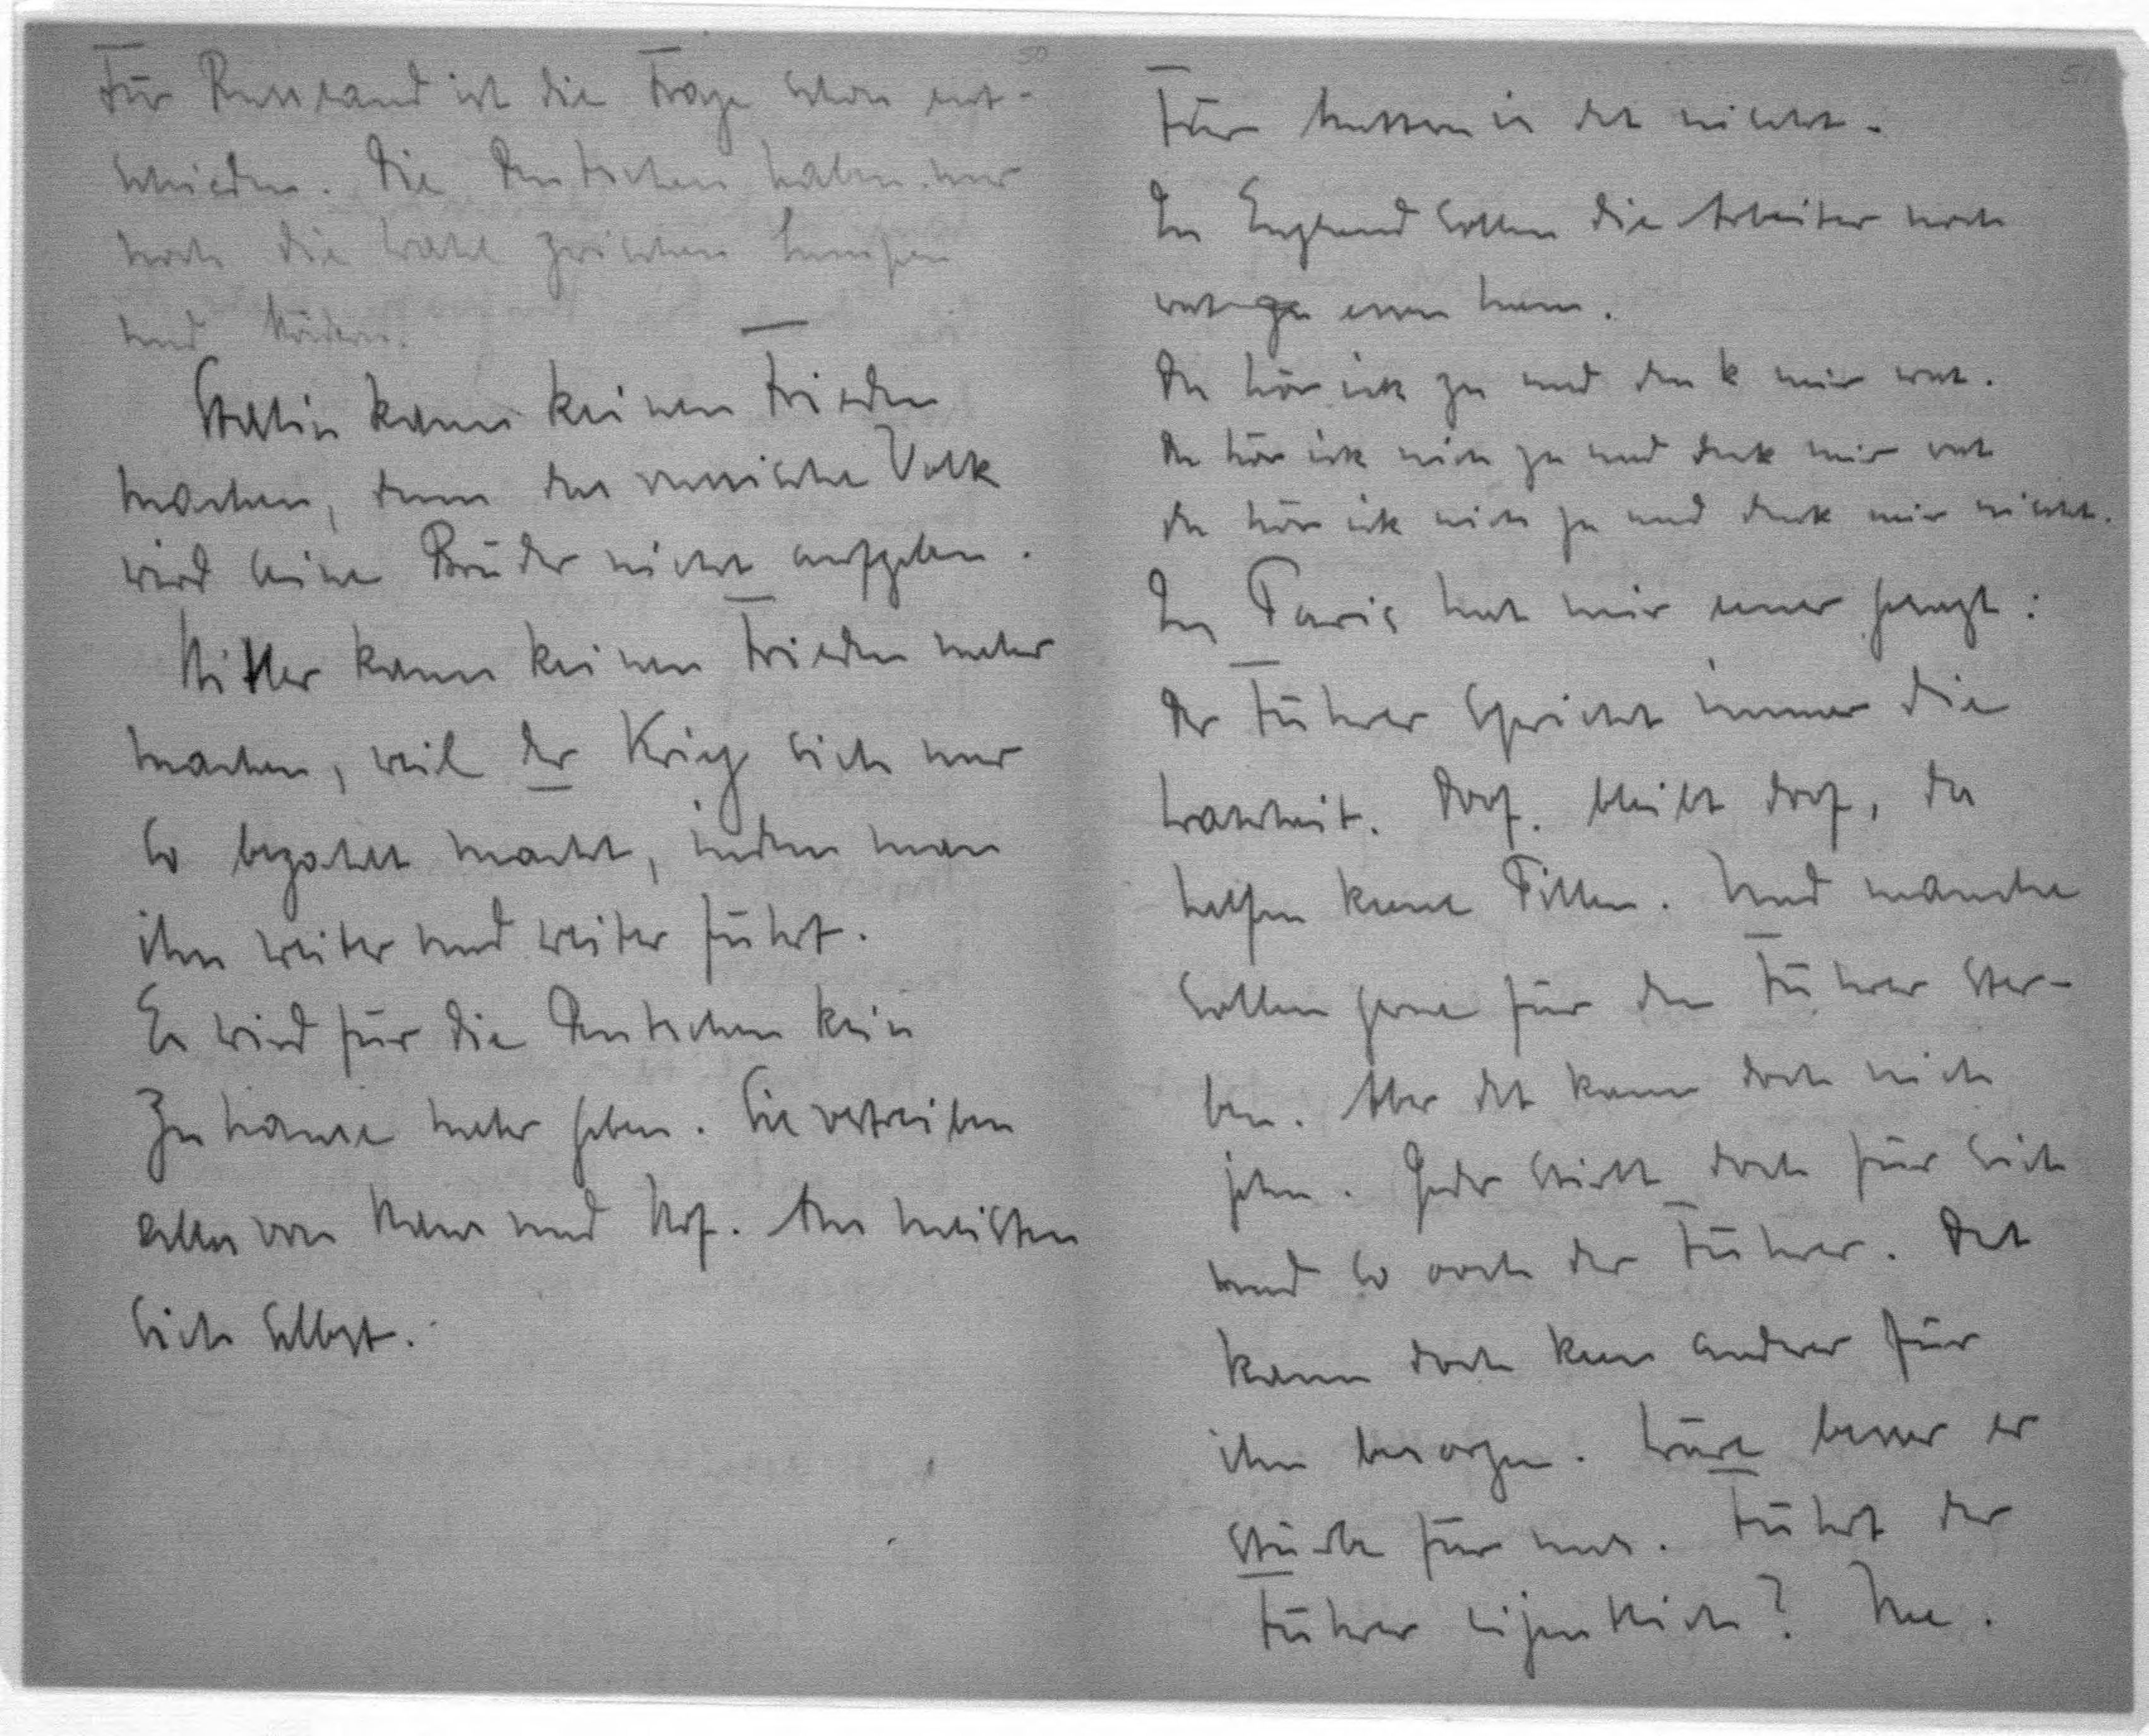 50
Für Russland ist die Frage schon ent-
schieden. Die Deutschen haben nur
noch die Wahl zwischen
und
Stalin kann keinen Frieden
machen, denn das russische Volk
wird seine Brüder nicht aufgeben.
Hitler kann keinen Frieden mehr
machen, weil der Krieg sich nur
so bezahlt macht, indem man
ihn weiter und weiter führt.
Es wird für die Deutschen kein
Zuhause mehr geben. Sie vertreiben
alles von Haus und Hof. Am meisten
sich selbst.
51
Für is det nicht.
In England sollen die Arbeiter noch
wat zu essen ham.
Da hör ick zu und denk mir wat.
Da hör ick nich zu und denk mir wat
da hör ick nich zu und denk mir nicht.
In Paris hat mir eener gesagt:
Der Führer spricht immer die
Wahrheit. Doof bleibt doof, da
helfen keene Pillen. Und manche
sollen gerne für den Führer ster-
ben. Aber det kann doch nich
jehn. Jeder stirbt doch für sich
und so ooch der Führer. Det
kann doch keen anderer für
ihn besorgen. Wäre besser er
stürbe für uns. Führt der
Führer eijentlich? Nee.